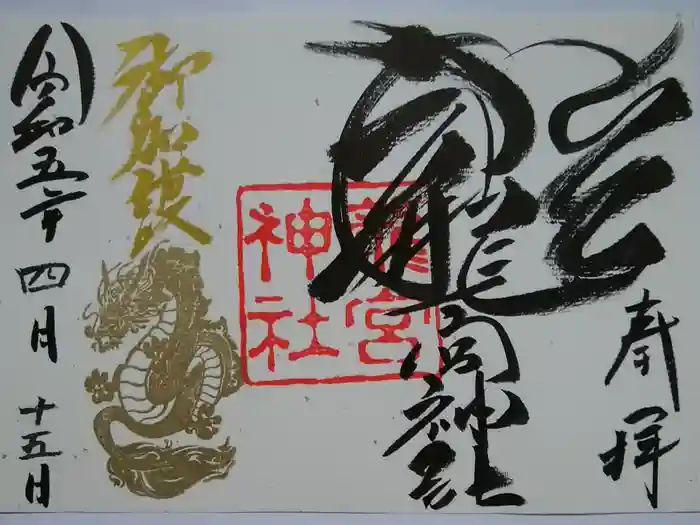 奉拝
龍宮神社
龍宮神社
御加護
令和五年四月十五日